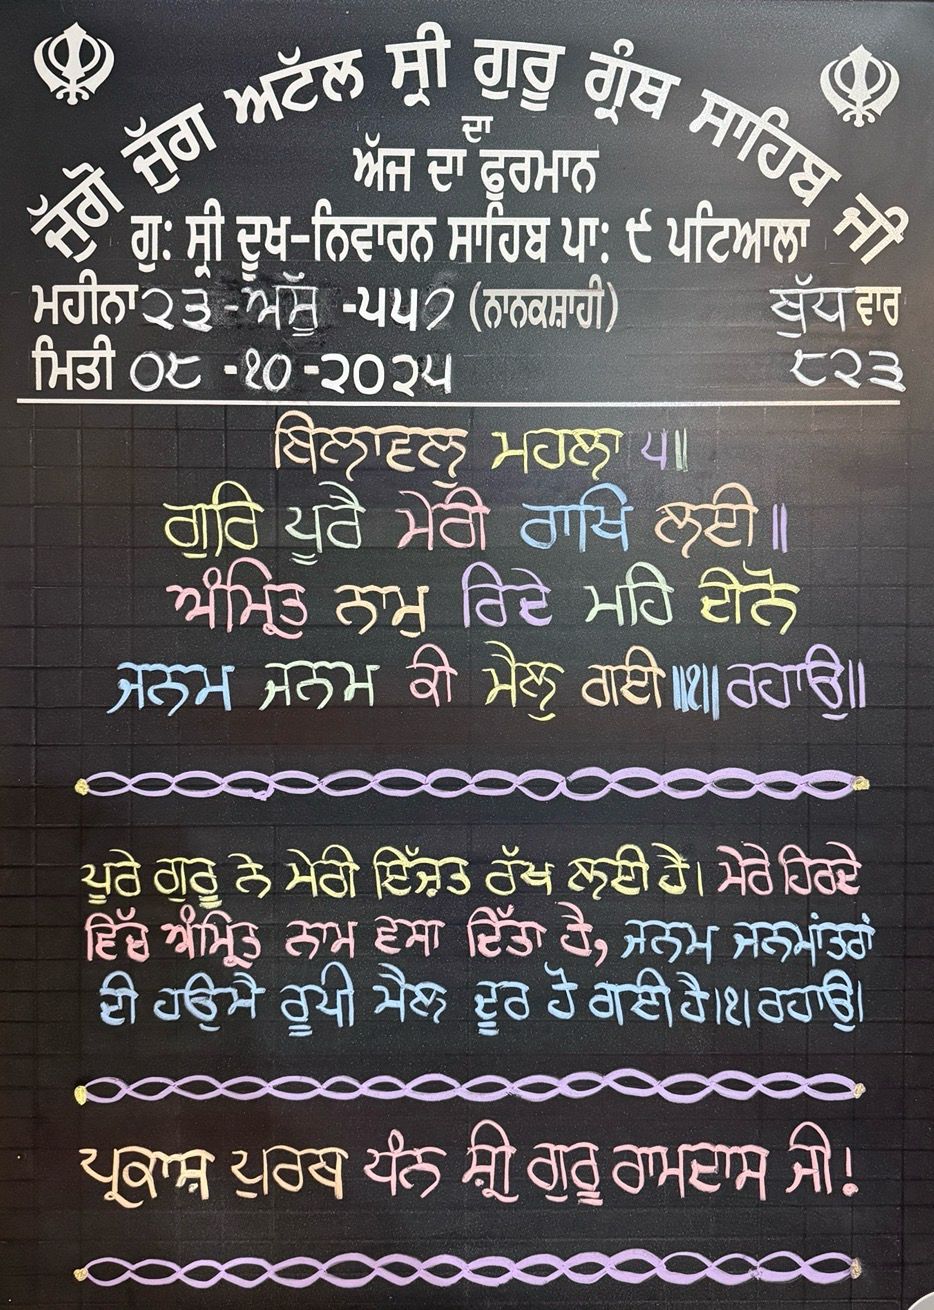 ਜੁੱਗੋ ਜੁੱਗ ਅਟੱਲ ਸ੍ਰੀ ਗੁਰੂ ਗ੍ਰੰਥ ਸਾਹਿਬ ਜੀ
ਦਾ
ਅੱਜ ਦਾ ਫੁਰਮਾਨ
ਗੁ: ਸ੍ਰੀ ਦੂਖ-ਨਿਵਾਰਨ ਸਾਹਿਬ ਪਾ: ੯ ਪਟਿਆਲਾ
ਮਹੀਨਾ ੨੩ -ਅੱਸੂ -੫੫੭ (ਨਾਨਕਸ਼ਾਹੀ) ਬੁੱਧ ਵਾਰ
ਮਿਤੀ ੦੮ -੧੦ -੨੦੨੫ ੮੨੩
ਬਿਲਾਵਲੁ ਮਹਲਾ ੫॥
ਗੁਰਿ ਪੂਰੈ ਮੇਰੀ ਰਾਖਿ ਲਈ॥
ਅੰਮ੍ਰਿਤੁ ਨਾਮੁ ਰਿਦੇ ਮਹਿ ਦੀਨੋ
ਜਨਮ ਜਨਮ ਕੀ ਮੈਲੁ ਗਈ॥੧॥ਰਹਾਉ॥
ਪੂਰੇ ਗੁਰੂ ਨੇ ਮੇਰੀ ਇੱਜ਼ਤ ਰੱਖ ਲਈ ਹੈ। ਮੇਰੇ ਹਿਰਦੇ
ਵਿੱਚ ਅੰਮ੍ਰਿਤ ਨਾਮ ਵਸਾ ਦਿੱਤਾ ਹੈ, ਜਨਮ ਜਨਮਾਂਤਰਾਂ
ਦੀ ਹਉਮੈ ਰੂਪੀ ਮੈਲ ਦੂਰ ਹੋ ਗਈ ਹੈ।੧।ਰਹਾਉ।
ਪ੍ਰਕਾਸ਼ ਪੁਰਬ ਧੰਨ ਸ਼੍ਰੀ ਗੁਰੂ ਰਾਮਦਾਸ ਜੀ!